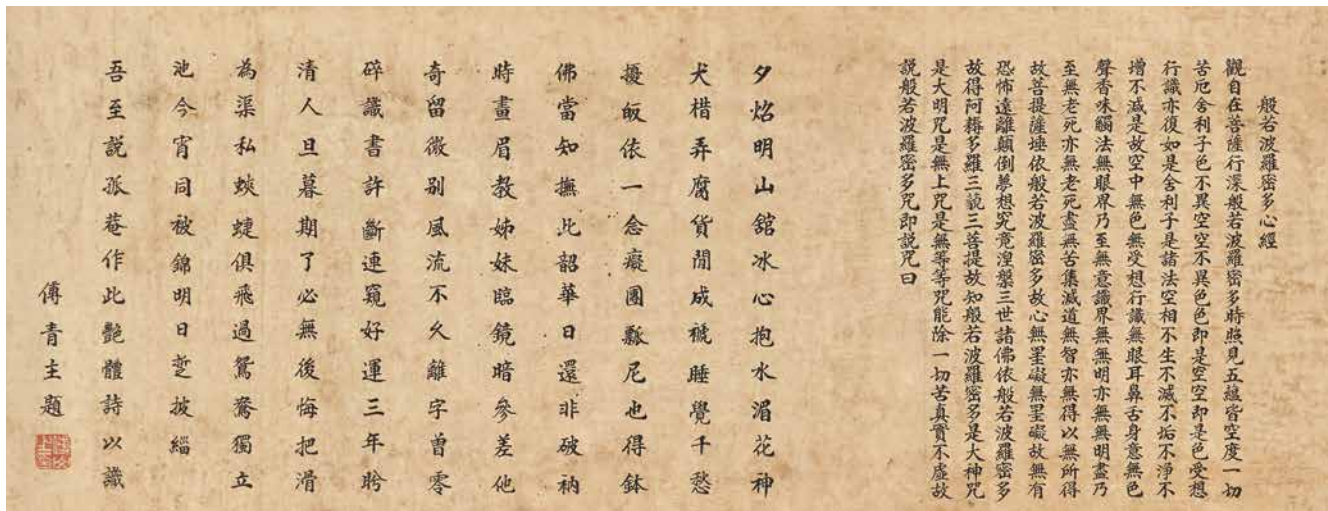 般若波羅密多心經
觀自在菩薩行深般若波羅密多時照見五蘊皆空度一切
苦厄舍利子色不異空空不異色色即是空空即是色受想
行識亦復如是舍利子是諸法空相不生不滅不垢不淨不
增不減是故空中無色無受想行識無眼耳鼻舌身意無色
聲香味觸法無眼界乃至無意識界無無明亦無無明盡乃
至無老死亦無老死盡無苦集滅道無智亦無得以無所得
故菩提薩埵依般若波羅密多故心無罣礙無罣礙故無有
恐怖遠離顛倒夢想究竟涅槃三世諸佛依般若波羅密多
故得阿耨多羅三藐三菩提故知般若波羅密多是大神咒
是大明咒是無上咒是無等等咒能除一切苦真實不虛故
說般若波羅密多咒即說咒曰
夕焰明山舘冰心抱水湄花神
犬棤弄腐貨閒成褫睡覺千愁
擾皈依一念癡團瓢尼也得鉢
佛當知撫此韶華日還非破衲
時畫眉教姊妹臨鏡暗參差他
奇留微别風流不久離字曾零
碎識書許斷連窺好運三年盻
清人旦暮期了必無後悔把滑
為渠私蛺蜨俱飛過鴛鴦獨立
池今宵同被錦明日披緇
吾至說孤菴作此艷體詩以識
傅青主題